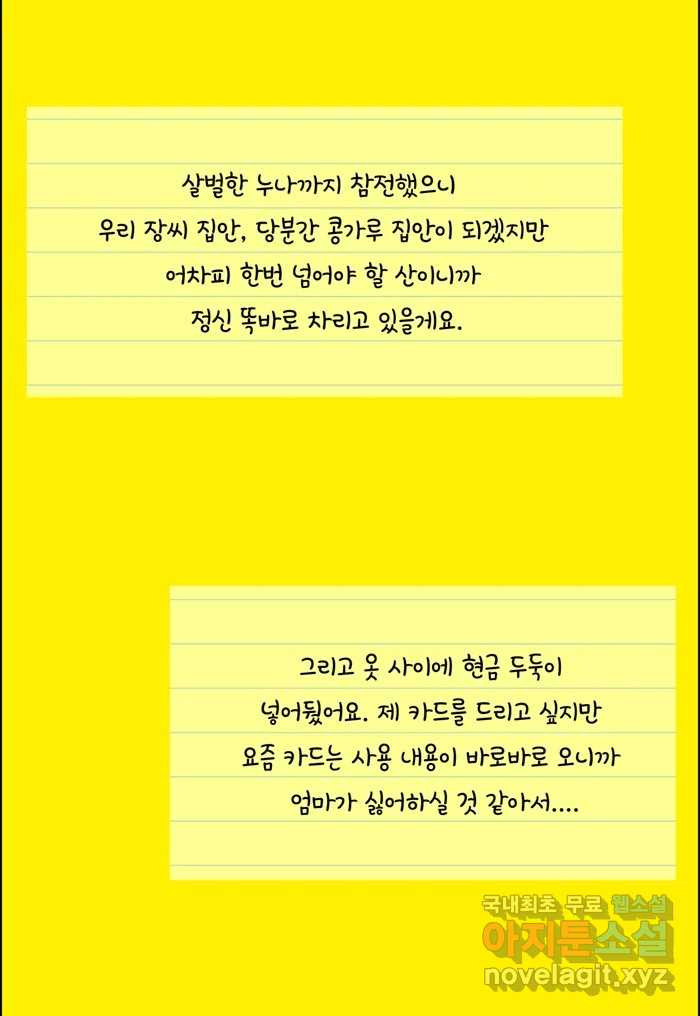 살벌한 누나까지 참전했으니
우리 장씨 집안, 당분간 콩가루 집안이 되겠지만
어차피 한번 넘어야 할 산이니까
정신 똑바로 차리고 있을게요.
그리고 옷 사이에 현금 두둑이
넣어뒀어요. 제 카드를 드리고 싶지만
요즘 카드는 사용 내용이 바로바로 오니까
엄마가 싫어하실 것 같아서....
국내최초 무료 웹소설
아지툰소설
novelagit.xyz